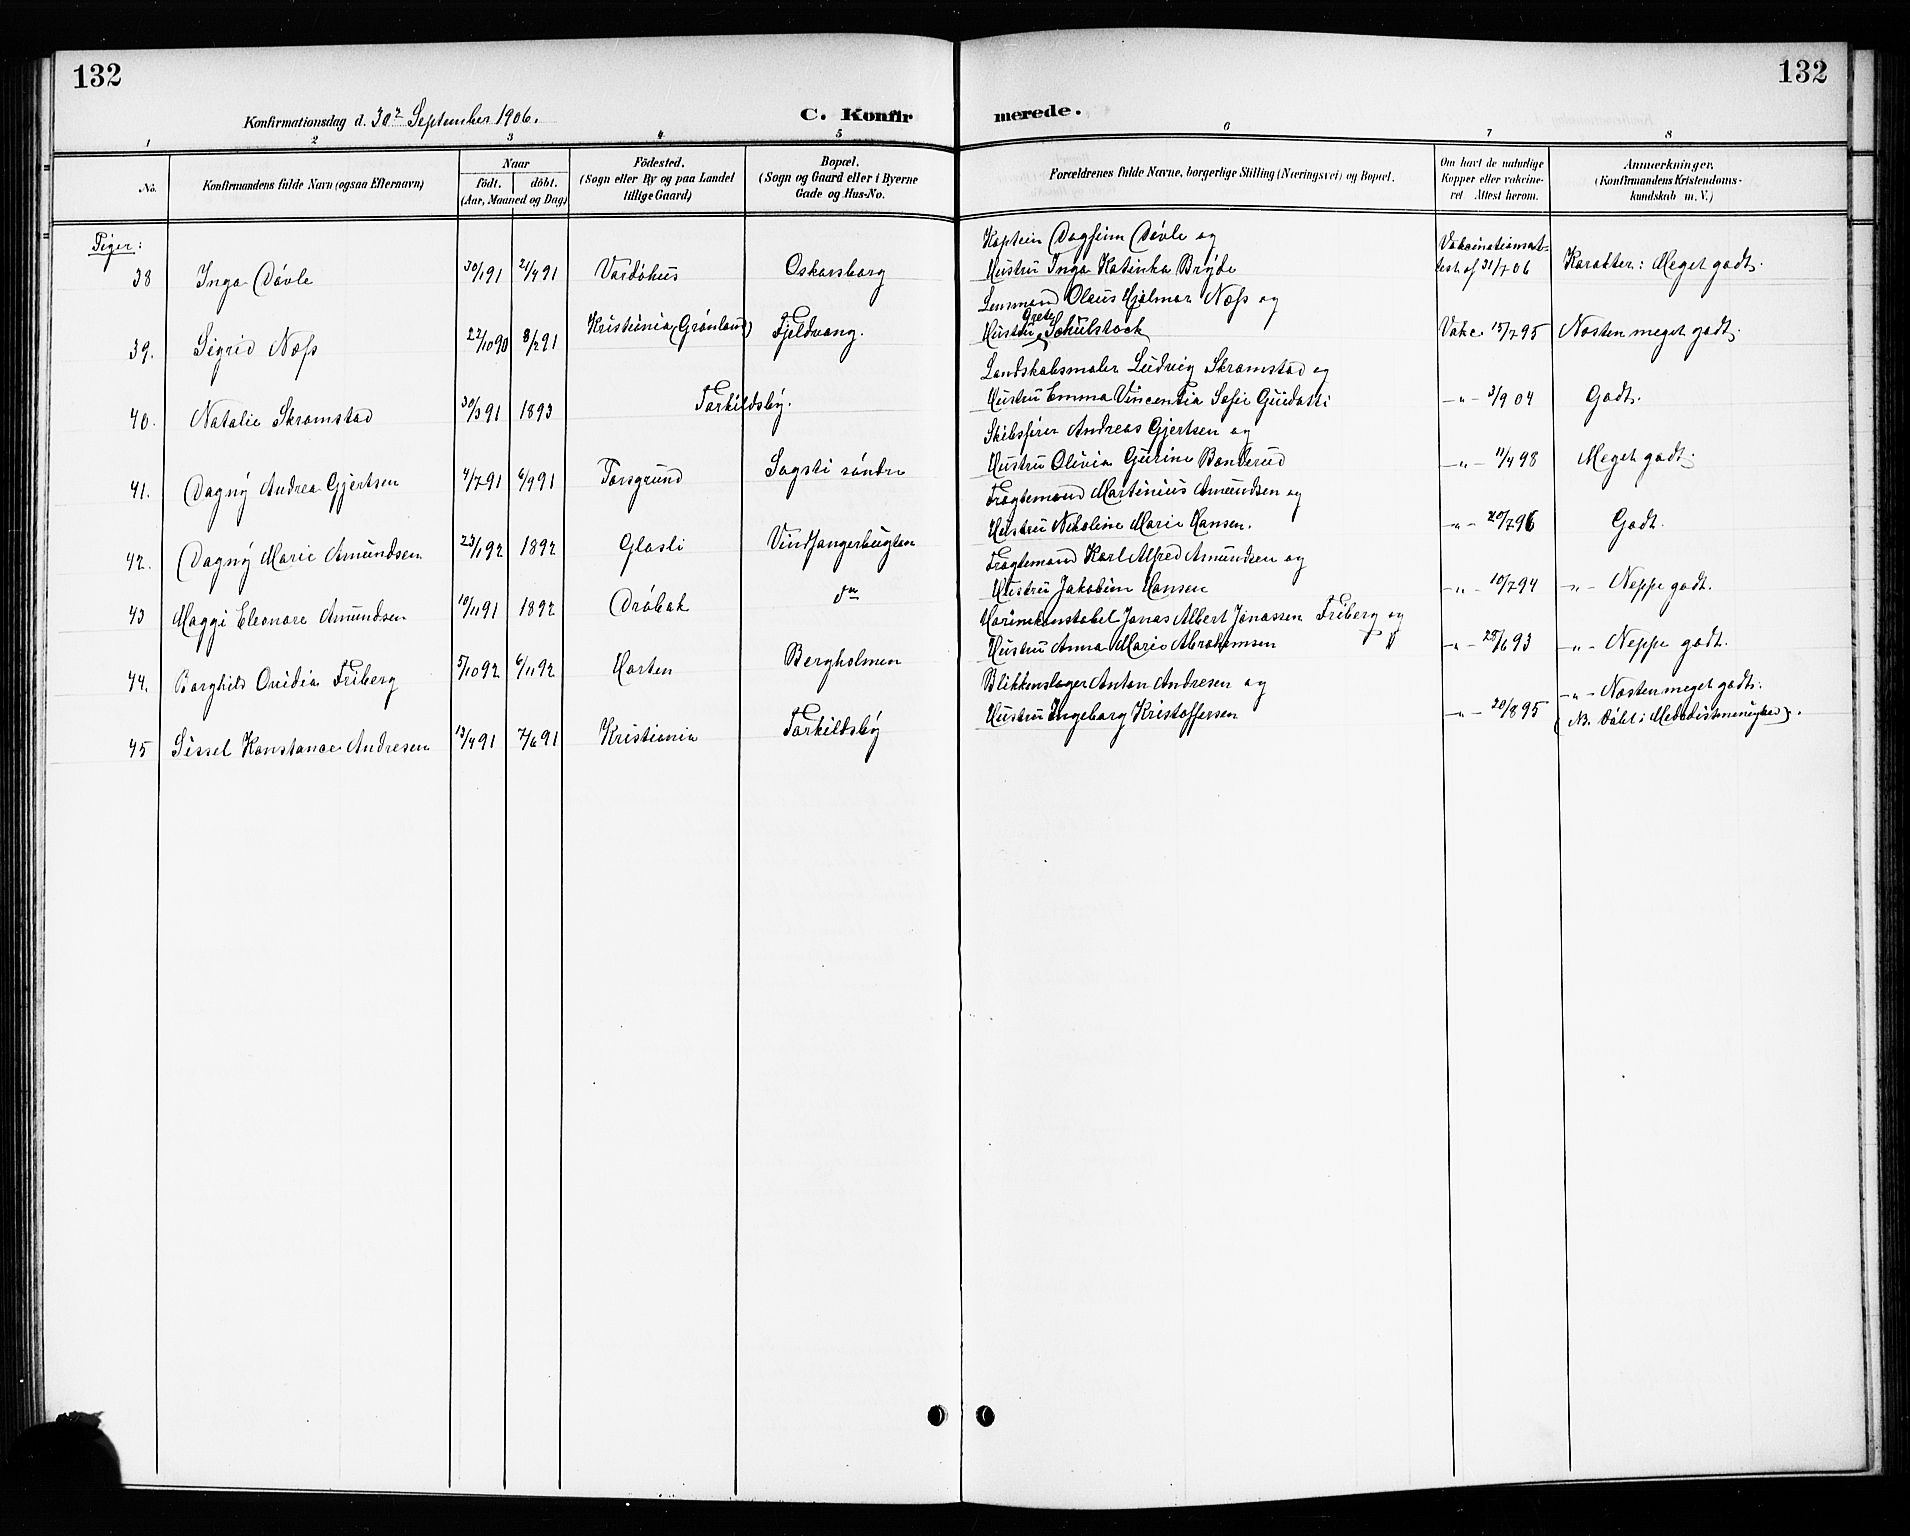 132
132
Konfirmationsdag d. 30te September 1906.
C. Konfir
merede.
1 2 3 4 5 6 7 8
No.
Konfirmandens fulde Navn (ogsaa Efternavn)
Naar
født. døbt.
(Aar, Maaned og Dag)
Fødested.
(Sogn eller By og paa Landet
tillige Gaard)
Bopæl.
(Sogn og Gaard eller i Byerne
Gade og Hus-No.
Forældrenes fulde Navne, borgerlige Stilling (Næringsvei) og Bopæl.
Om havt de naturlige
Kopper eller vakcine-
ret Attest herom.
Anmærkninger.
(Konfirmandens Kristendoms-
kundskab m. V.)
Piger:
Kaptein Dagfinn Døvle og
38 Inga Døvle 30/1 91 21/4 91 Vardøhus Oskarsborg Hustru Inga Katinka Bryde Vakcinationsat-
test af 31/7 06 Karakter: Meget godt.
Lensmand Olaus Hjalmar Næss og
39. Sigrid Næss 22/10 90 8/2 91 Kristiania (Grønland) Fjeldvang. Hustru Grete Schulstock Vakc. 15/7 95 Næsten meget godt.
Landskabsmaler Ludvig Skramstad og
40. Natalie Skramstad 30/3 91 1893 Torkildsby. Hustru Emma Vincentia Sofie Guidotti -„- 3/9 04 Godt.
Skibsfører Andreas Gjertsen og
41. Dagny Andrea Gjertsen 4/7 91 6/9 91 Porsgrund Sogsti søndre Hustru Olivia Gurine Bonderud -„- 11/4 98 Meget godt.
Fragtemand Martinius Amundsen og
42. Dagny Marie Amundsen 23/1 92 1892 Glasli Vindfangerbugten Hustru Nikoline Marie Hansen. -„- 20/7 96 Godt.
Fragtemand Karl Alfred Amundsen og
43 Maggi Eleonore Amundsen 10/11 91 1892 Drøbak do Hustru Jakobine Hansen -„- 10/7 94 -„- Neppe godt.
Marinekonstabel Jonas Albert Jonassen Friberg og
44. Borghild Ovidia Friberg 5/10 92 6/11 92 Horten Bergholmen Hustru Anna Marie Abrahamsen -„- 25/6 93 -„- Neppe godt.
Blikkenslager Anton Andresen og
45 Sissel Konstance Andresen 13/4 91 7/6 91 Kristiania Torkildsby Hustru Ingeborg Kristoffersen -„- 20/8 95 -„- Næsten meget godt.
(NB. Døbt i Methodistmenighed).